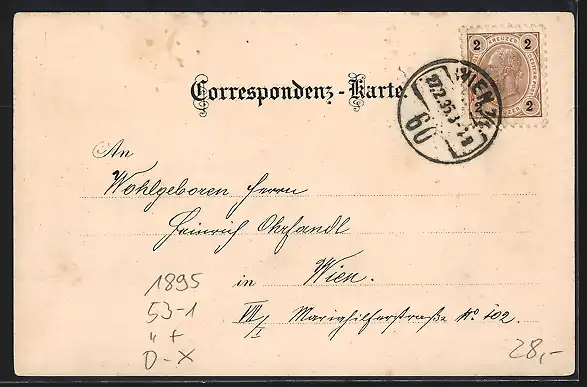 2 KREUZER 2
2 2
Correspondenz-Karte.
WIEN 7/1
27.2.95.3-4N
60
An
Wohlgeboren Herrn
Heinrich Ohrfandl
in Wien.
VII/I Mariahilferstraße No 102.
1895
53-1
" +
D-X
28,-